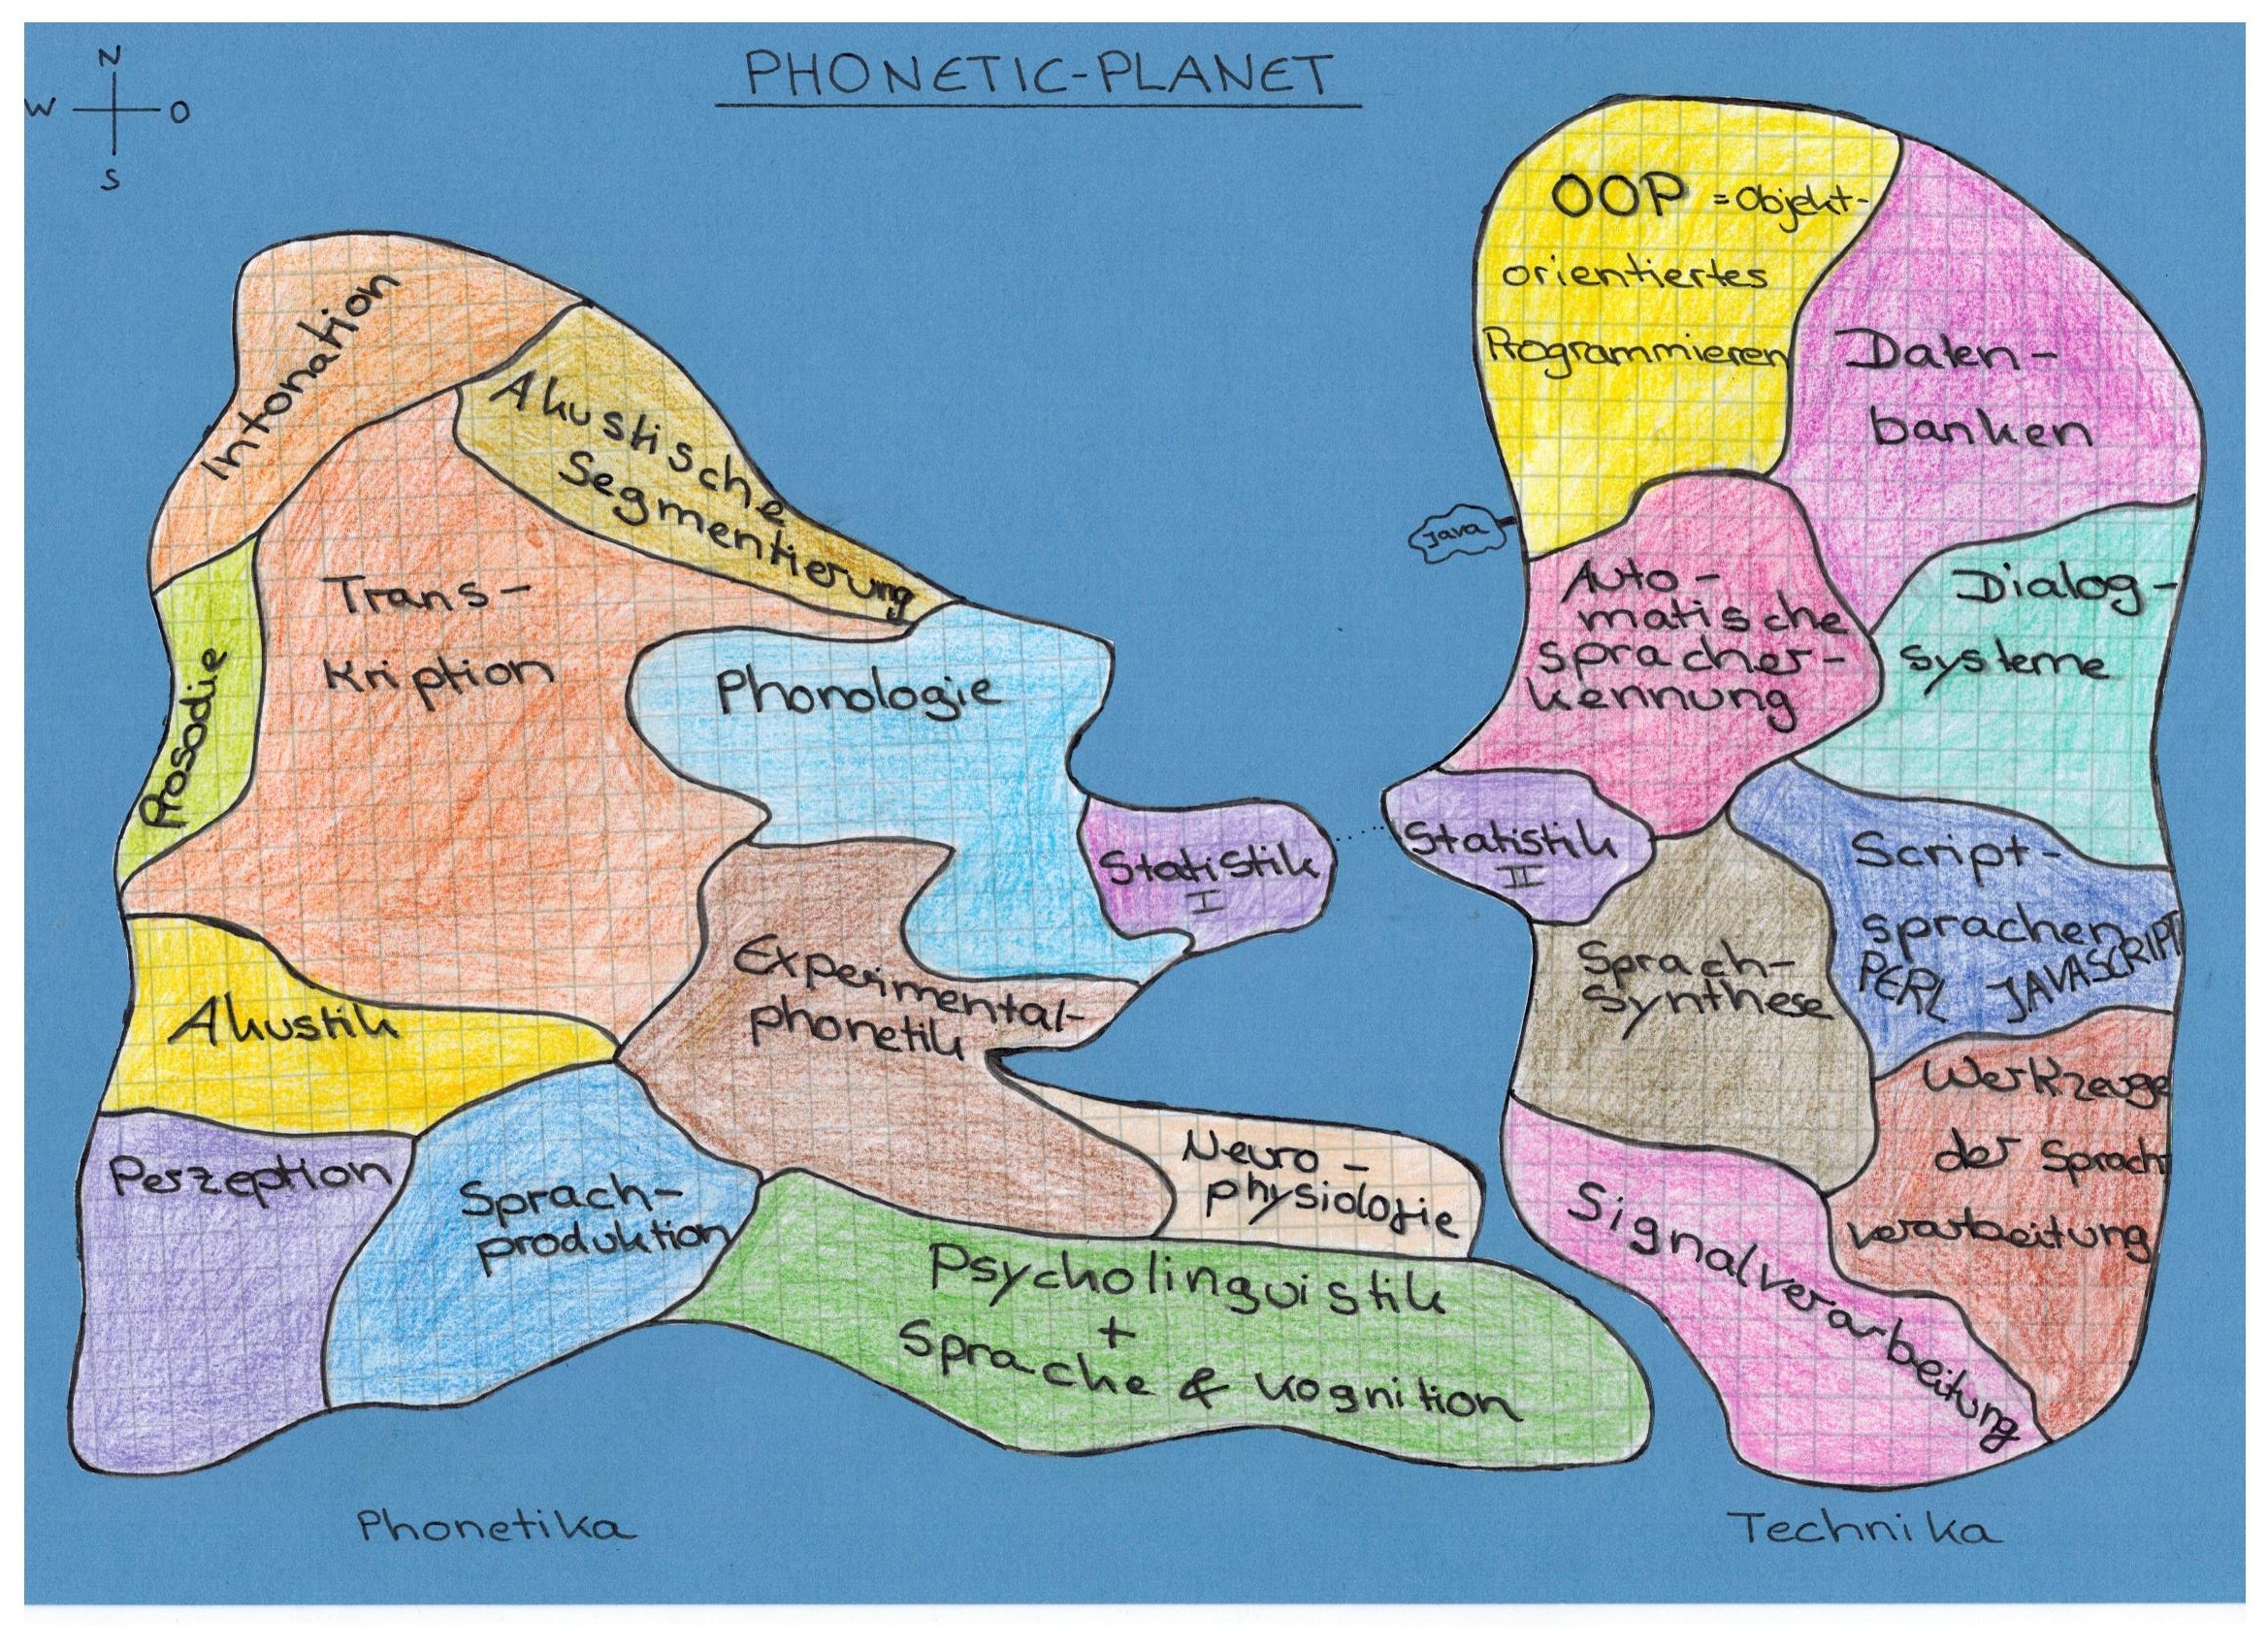 PHONETIC-PLANET
N
W O
S
Intonation
Akustische
Segmentierung
Trans-
kription
Prosodie
Phonologie
Statistik
I
Akustik
Experimental-
phonetik
Perzeption
Sprach-
produktion
Neuro-
physiologie
Psycholinguistik
+
Sprache & Kognition
Phonetika
OOP = Objekt-
orientiertes
Programmieren
Daten-
banken
Java
Auto-
matische
spracher-
kennung
Dialog-
systeme
Statistik
II
Script-
sprachen
PERL JAVASCRIPT
Sprach-
synthese
Werkzeuge
der Sprach
verarbeitung
Signalverarbeitung
Technika